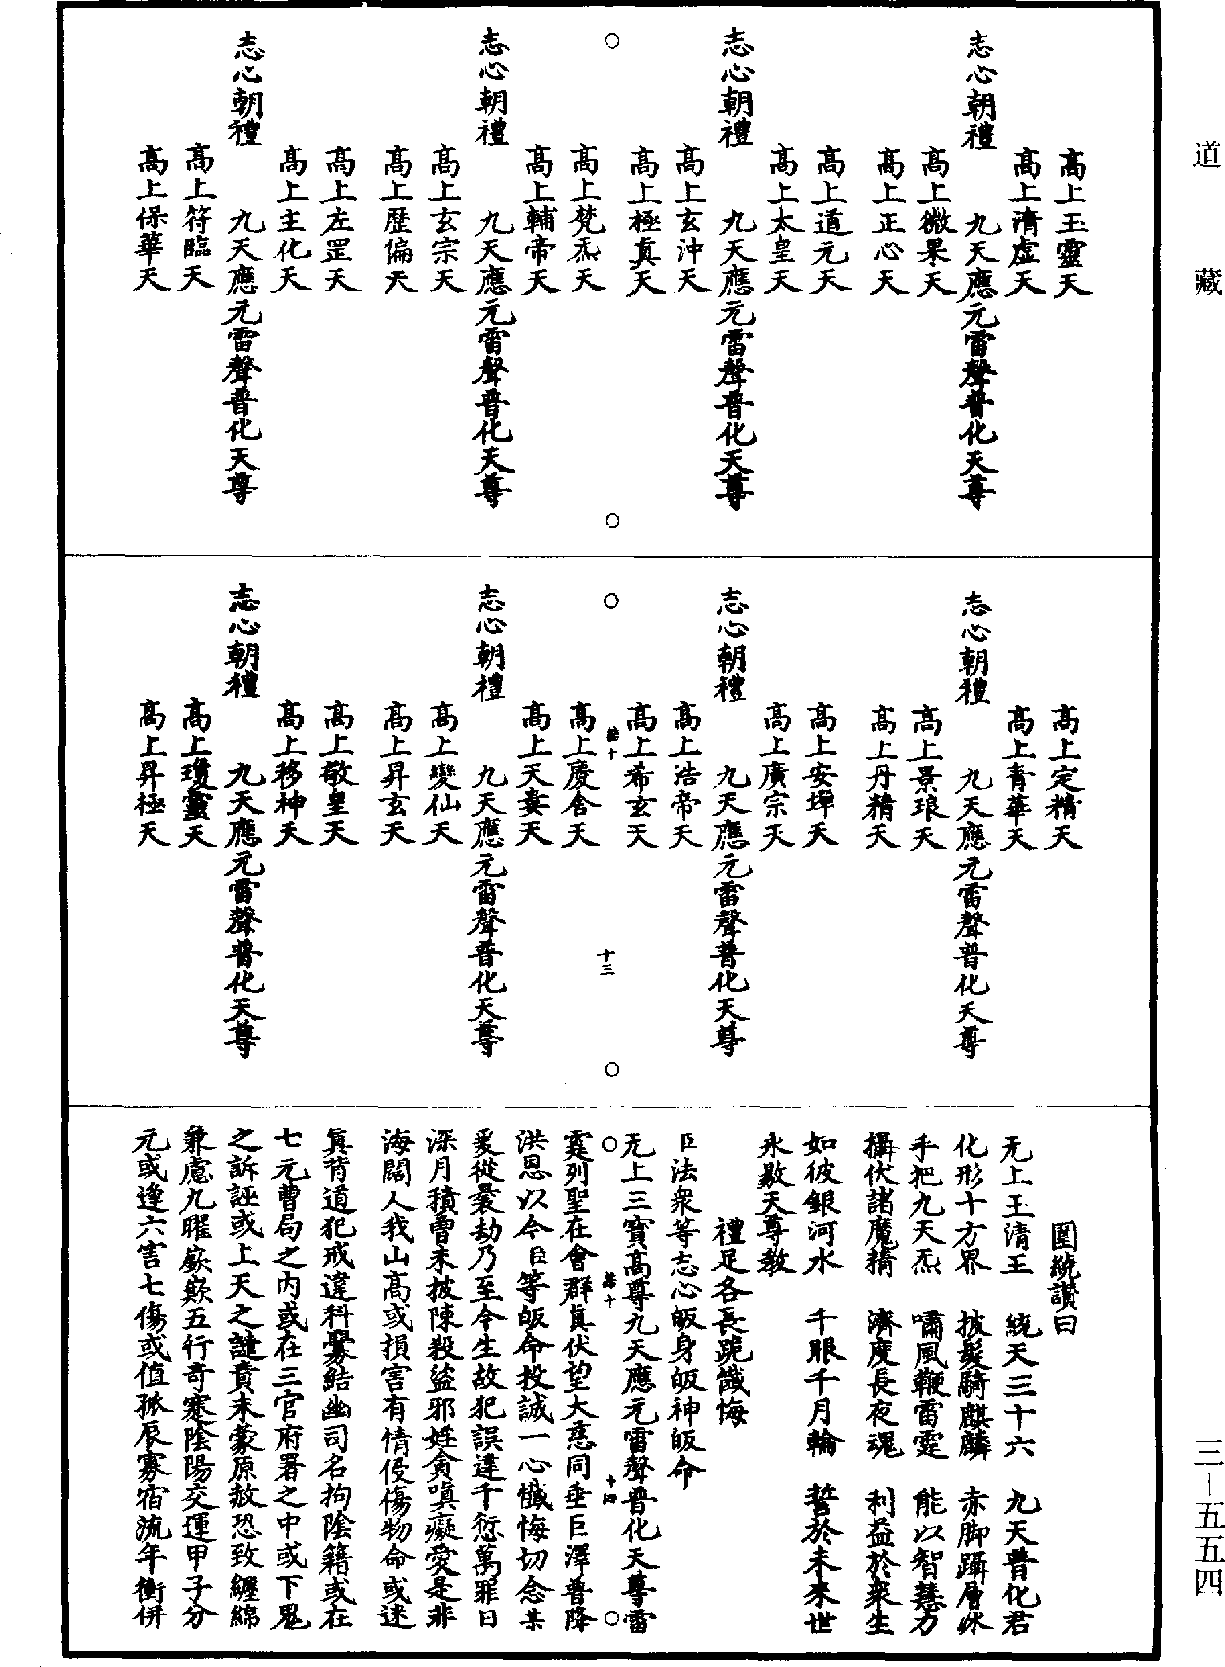 道藏
高上玉靈天
高上清虛天
志心朝禮　九天應元雷聲普化天尊
高上微果天
高上正心天
高上道元天
高上太皇天
志心朝禮　九天應元雷聲普化天尊
高上玄沖天
高上極真天
高上梵炁天
高上輔帝天
志心朝禮　九天應元雷聲普化天尊
高上玄宗天
高上歷偏天
高上左罡天
高上主化天
志心朝禮　九天應元雷聲普化天尊
高上符臨天
高上保華天
高上定精天
高上青華天
志心朝禮　九天應元雷聲普化天尊
高上景琅天
高上丹精天
高上安墠天
高上廣宗天
志心朝禮　九天應元雷聲普化天尊
高上浩帝天
高上希玄天
十三
高上慶舍天
高上天婁天
志心朝禮　九天應元雷聲普化天尊
高上變仙天
高上昇玄天
高上敬皇天
高上移神天
志心朝禮　九天應元雷聲普化天尊
高上瓊靈天
高上昇極天
圍繞讚曰
无上玉清王　統天三十六　九天普化君
化形十方界　披髮騎麒麟　赤脚躡層冰
手把九天炁　嘯風鞭雷霆　能以智慧力
攝伏諸魔精　濟度長夜魂　利益於衆生
如彼銀河水　千眼千月輪　誓於未來世
永敭天尊教
禮足各長跪懺悔
臣法衆等志心皈身皈神皈命
无上三寶高尊九天應元雷聲普化天尊雷
十四
霆列聖在會群真伏望大慈同垂巨澤普降
洪恩以今臣等皈命投誠一心懺悔切念某
爰從曩劫乃至今生故犯誤違千愆萬罪日
深月積曾未披陳殺盜邪婬貪嗔癡愛是非
海闊人我山高或損害有情侵傷物命或迷
真背道犯戒違科釁結幽司名拘陰籍或在
七元曹局之內或在三官府署之中或下鬼
之訴誣或上天之譴責未蒙原赦恐致纏綿
兼慮九曜嶔歁五行奇蹇陰陽交運甲子分
元或逢六害七傷或值孤辰寡宿流年衝併
三－五五四